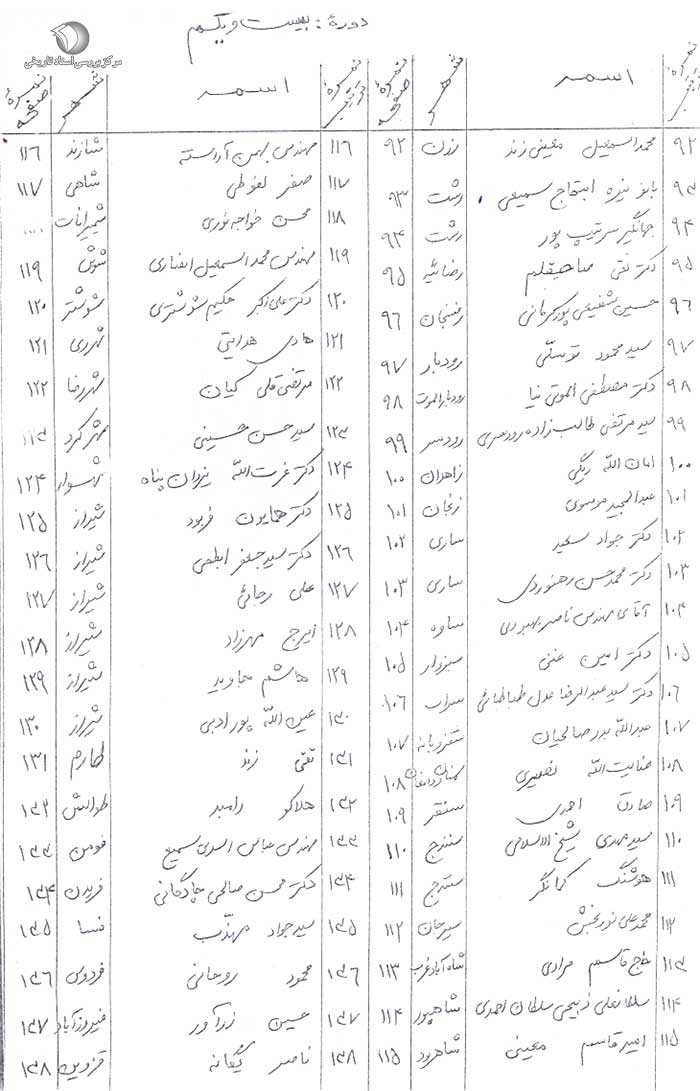 دورهٔ : بیست و یکم
مرکز بررسی اسناد تاریخی
نمرهٔ ترتیب اسم شهر نمرهٔ صفحه
۹۲ محمد اسمعیل معینی زند رزن ۹۲
۹۳ بانو نیره ابتهاج سمیعی رشت ۹۳
۹۴ جهانگیر سرتیپ پور رشت ۹۴
۹۵ دکتر تقی رضائیه ۹۵
۹۶ حسین شفیعی پور کرمانی رفسنجان ۹۶
۹۷ سید محمود توسلی رودبار ۹۷
۹۸ دکتر مصطفی الموتی نیا رودبار الموت ۹۸
۹۹ سید مرتضی طالب زاده رودسری رودسر ۹۹
۱۰۰ امان الله ریگی زاهدان ۱۰۰
۱۰۱ عبدالمجید موسوی زنجان ۱۰۱
۱۰۲ دکتر جواد سعید ساری ۱۰۲
۱۰۳ دکتر محمد حسن رهنوردی ساری ۱۰۳
۱۰۴ آقای مهندس ناصر بهبودی ساوه ۱۰۴
۱۰۵ دکتر امین سبزوار ۱۰۵
۱۰۶ دکتر سید عبدالرضا عدل طباطبائی سراب ۱۰۶
۱۰۷ عبدالله بدر صالحیان سقز و بانه ۱۰۷
۱۰۸ عنایت الله نصیری سمنان و دامغان ۱۰۸
۱۰۹ صادق احمدی سنقر ۱۰۹
۱۱۰ سید مهدی شیخ الاسلامی سنندج ۱۱۰
۱۱۱ هوشنگ کمانگر سنندج ۱۱۱
۱۱۲ محمد علی نوربخش سیرجان ۱۱۲
۱۱۳ حاج قاسم مرادی شاه آباد غرب ۱۱۳
۱۱۴ سلطانعلی ذبیحی سلطان احمدی شاهپور ۱۱۴
۱۱۵ امیر قاسم معینی شاهرود ۱۱۵
نمرهٔ ترتیب اسم شهر نمرهٔ صفحه
۱۱۶ مهندس بهمن آراسته شازند ۱۱۶
۱۱۷ صفر لفوطی شاهی ۱۱۷
۱۱۸ محسن خواجه نوری شمیرانات
۱۱۹ مهندس محمد اسمعیل انصاری شوش ۱۱۹
۱۲۰ دکتر علی اکبر حکیم شوشتری شوشتر ۱۲۰
۱۲۱ هادی هدایتی شهرری ۱۲۱
۱۲۲ مرتضی قلی کیان شهررضا ۱۲۲
۱۲۳ سید حسن حسینی شهرکرد ۱۲۳
۱۲۴ دکتر عزت الله یزدان پناه شهسوار ۱۲۴
۱۲۵ دکتر همایون فربود شیراز ۱۲۵
۱۲۶ دکتر سید جعفر ابطحی شیراز ۱۲۶
۱۲۷ علی رجائی شیراز ۱۲۷
۱۲۸ ایرج مهرزاد شیراز ۱۲۸
۱۲۹ هاشم جاوید شیراز ۱۲۹
۱۳۰ عین الله پورادبی شیراز ۱۳۰
۱۳۱ تقی زند طارم ۱۳۱
۱۳۲ هلاکو رامبد طوالش ۱۳۲
۱۳۳ مهندس عباس اسدی سمیع فومن ۱۳۳
۱۳۴ دکتر محسن صالحی چادگانی فریدن ۱۳۴
۱۳۵ سید جواد مهذب فسا ۱۳۵
۱۳۶ محمود روحانی فردوس ۱۳۶
۱۳۷ حسین زرآور فیروزآباد ۱۳۷
۱۳۸ ناصر یگانه قزوین ۱۳۸